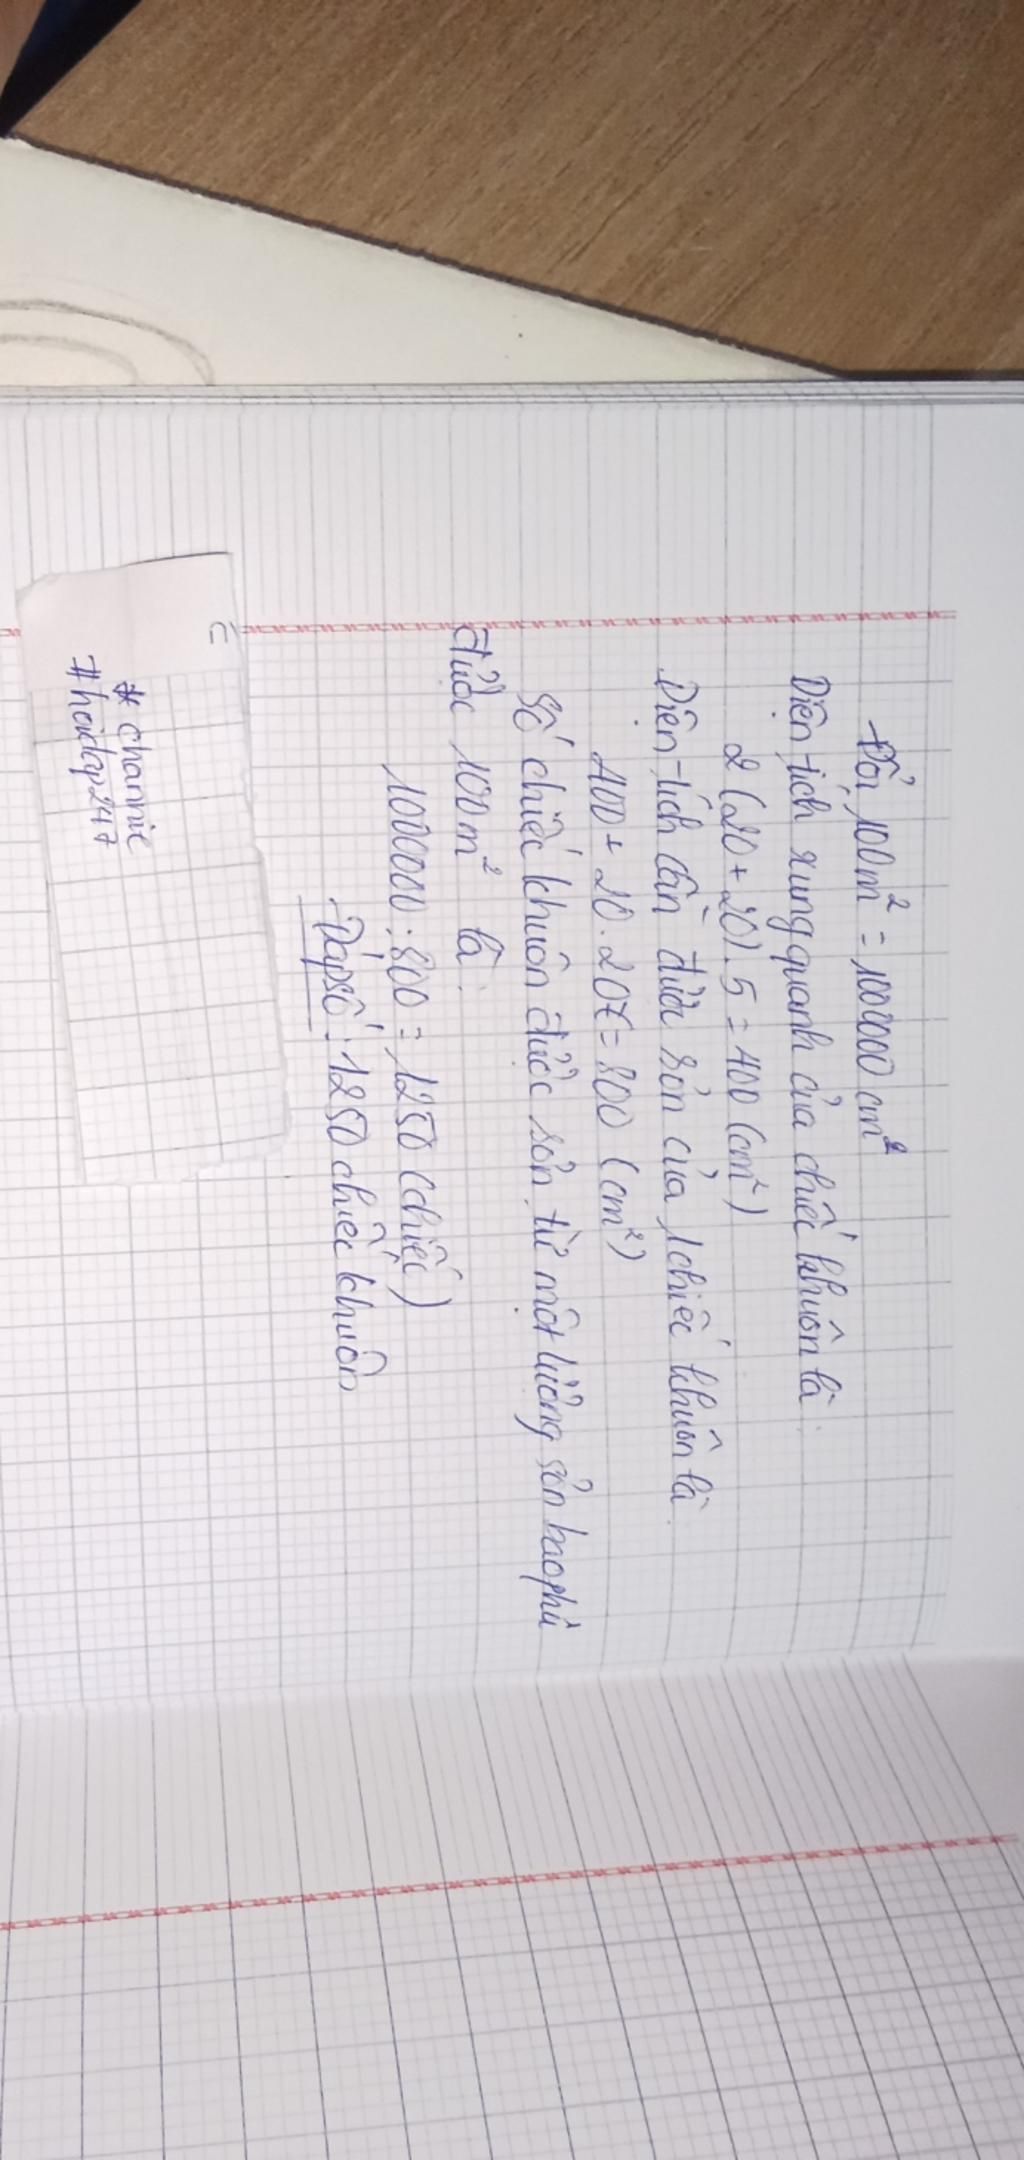 Đổi 100m² = 1000000 cm²
Diện tích xung quanh của chiếc khuôn là:
2(20+20).5 = 400 (cm²)
Diện tích cần được sơn của 1 chiếc khuôn là
400 + 20.20 = 800 (cm²)
Số chiếc khuôn được sơn từ một lượng sơn bao phủ
được 100m² là:
1000000:800 = 1250 (chiếc)
Đáp số: 1250 chiếc khuôn
* channie
#hoidap247